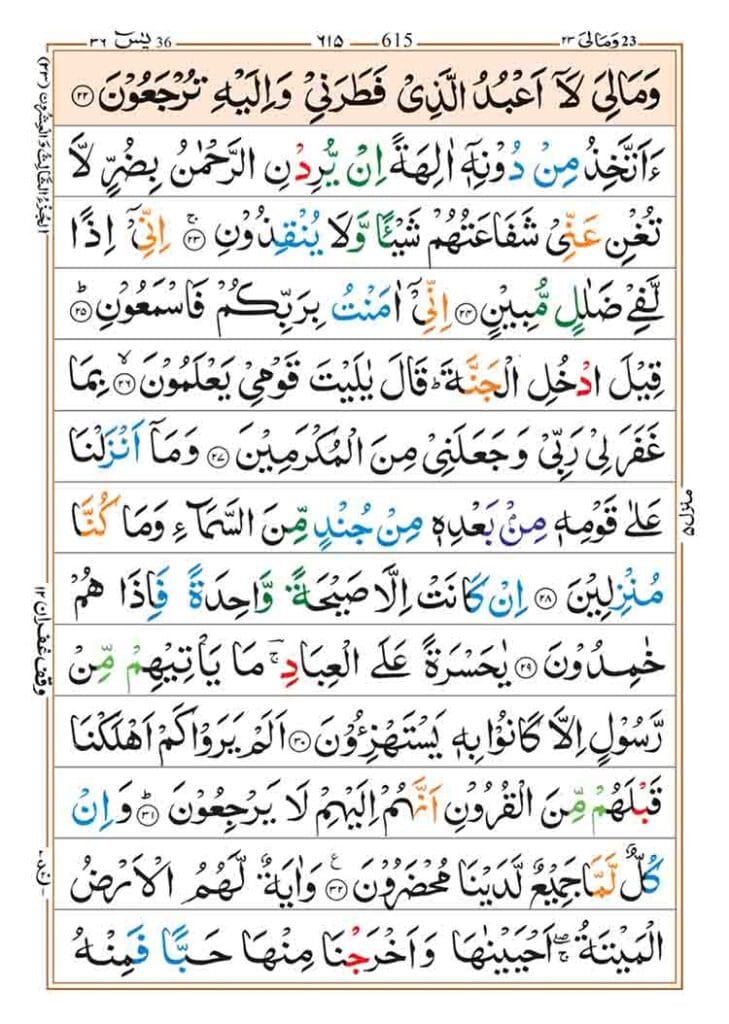 36 يٰسٓ ٣٦
615 ٦١٥
23 وَمَالِیَ ٢٣
وَمَالِیَ لَاۤ اَعْبُدُ الَّذِیْ فَطَرَنِیْ وَاِلَیْهِ تُرْجَعُوْنَ ﴿۲۲﴾
ءَاَتَّخِذُ مِنْ دُوْنِهٖۤ اٰلِهَةً اِنْ یُّرِدْنِ الرَّحْمٰنُ بِضُرٍّ لَّا
تُغْنِ عَنِّیْ شَفَاعَتُهُمْ شَیْـًٔا وَّلَا یُنْقِذُوْنِ ۚ﴿۲۳﴾ اِنِّیْۤ اِذًا
لَّفِیْ ضَلٰلٍ مُّبِیْنٍ ﴿۲۴﴾ اِنِّیْۤ اٰمَنْتُ بِرَبِّكُمْ فَاسْمَعُوْنِ ؕ﴿۲۵﴾
قِیْلَ ادْخُلِ الْجَنَّةَ ؕ قَالَ یٰلَیْتَ قَوْمِیْ یَعْلَمُوْنَ ۙ﴿۲۶﴾ بِمَا
غَفَرَ لِیْ رَبِّیْ وَجَعَلَنِیْ مِنَ الْمُكْرَمِیْنَ ﴿۲۷﴾ وَمَاۤ اَنْزَلْنَا
عَلٰی قَوْمِهٖ مِنْۢ بَعْدِهٖ مِنْ جُنْدٍ مِّنَ السَّمَآءِ وَمَا كُنَّا
مُنْزِلِیْنَ ﴿۲۸﴾ اِنْ كَانَتْ اِلَّا صَیْحَةً وَّاحِدَةً فَاِذَا هُمْ
خٰمِدُوْنَ ﴿۲۹﴾ یٰحَسْرَةً عَلَی الْعِبَادِ ۚؔ مَا یَاْتِیْهِمْ مِّنْ
رَّسُوْلٍ اِلَّا كَانُوْا بِهٖ یَسْتَهْزِءُوْنَ ﴿۳۰﴾ اَلَمْ یَرَوْا كَمْ اَهْلَكْنَا
قَبْلَهُمْ مِّنَ الْقُرُوْنِ اَنَّهُمْ اِلَیْهِمْ لَا یَرْجِعُوْنَ ؕ﴿۳۱﴾ وَاِنْ
كُلٌّ لَّمَّا جَمِیْعٌ لَّدَیْنَا مُحْضَرُوْنَ ﴿۳۲﴾ ع وَاٰیَةٌ لَّهُمُ الْاَرْضُ
الْمَیْتَةُ ۖۚ اَحْیَیْنٰهَا وَاَخْرَجْنَا مِنْهَا حَبًّا فَمِنْهُ
اَلْجُزْءُ الثَّالِثُ وَالْعِشْرُوْنَ (٢٣)
وقف غفران ١٢
منزل ٥